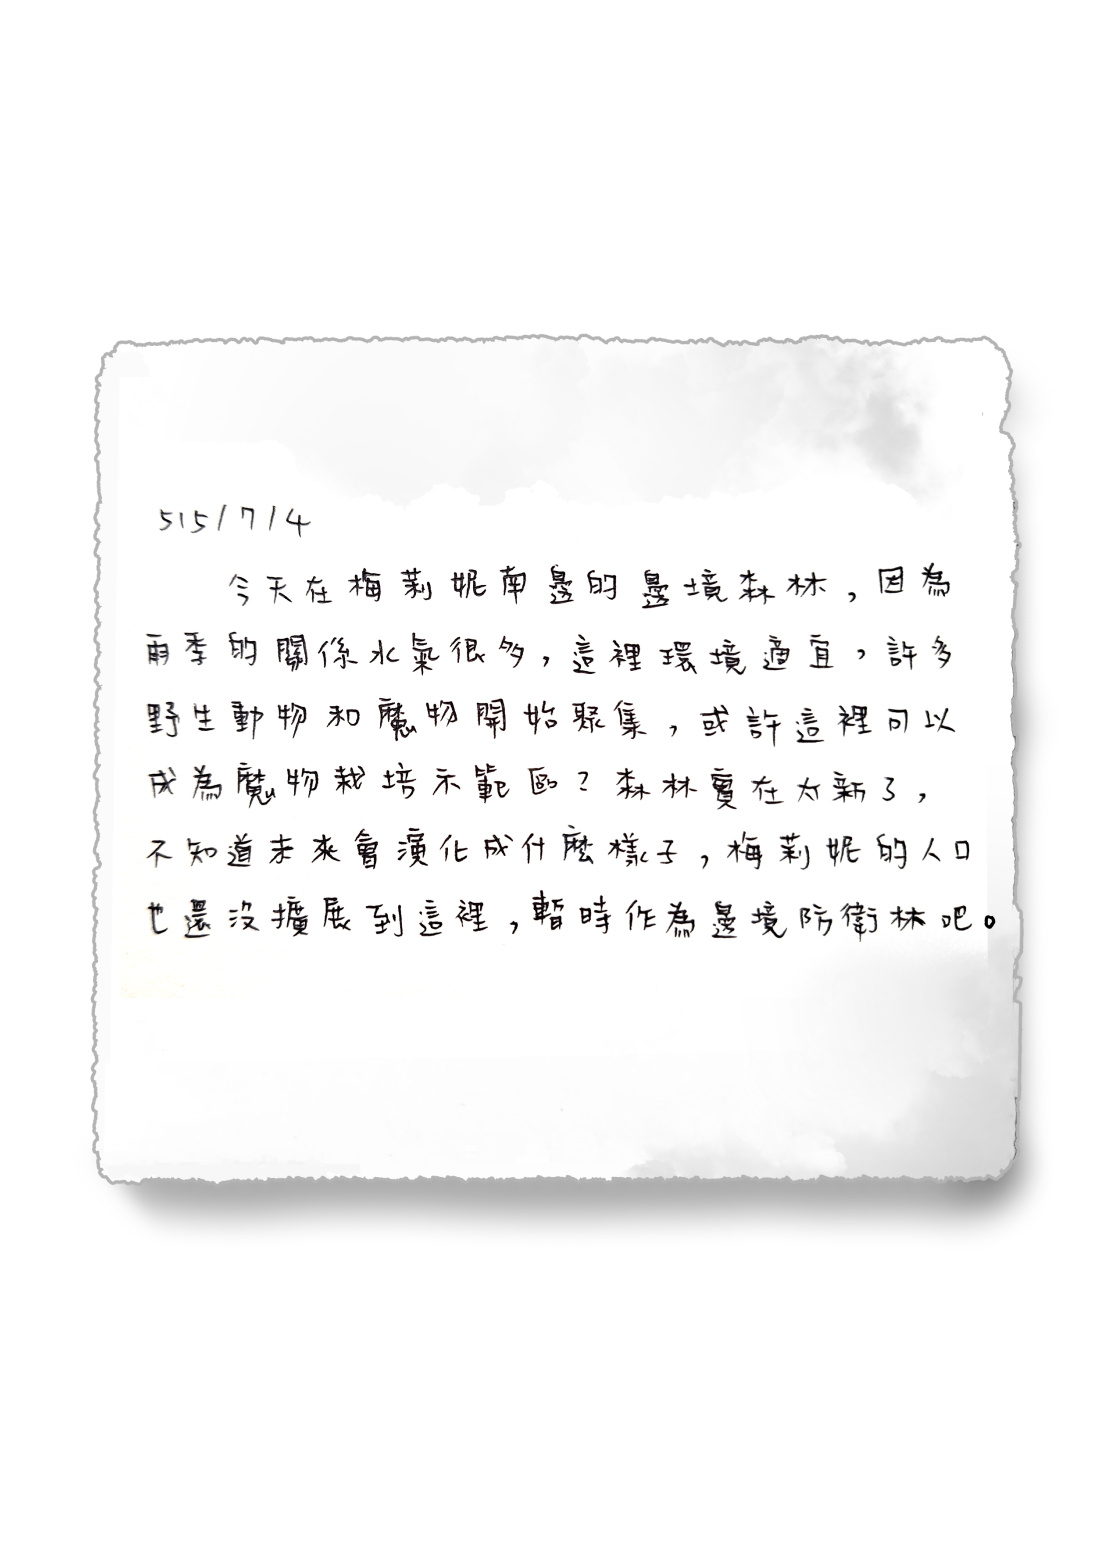 515/7/4
今天在梅莉妮南邊的邊境森林，因為
雨季的關係水氣很多，這裡環境適宜，許多
野生動物和魔物開始聚集，或許這裡可以
成為魔物栽培示範區？森林實在太新了，
不知道未來會演化成什麼樣子，梅莉妮的人口
也還沒擴展到這裡，暫時作為邊境防衛林吧。